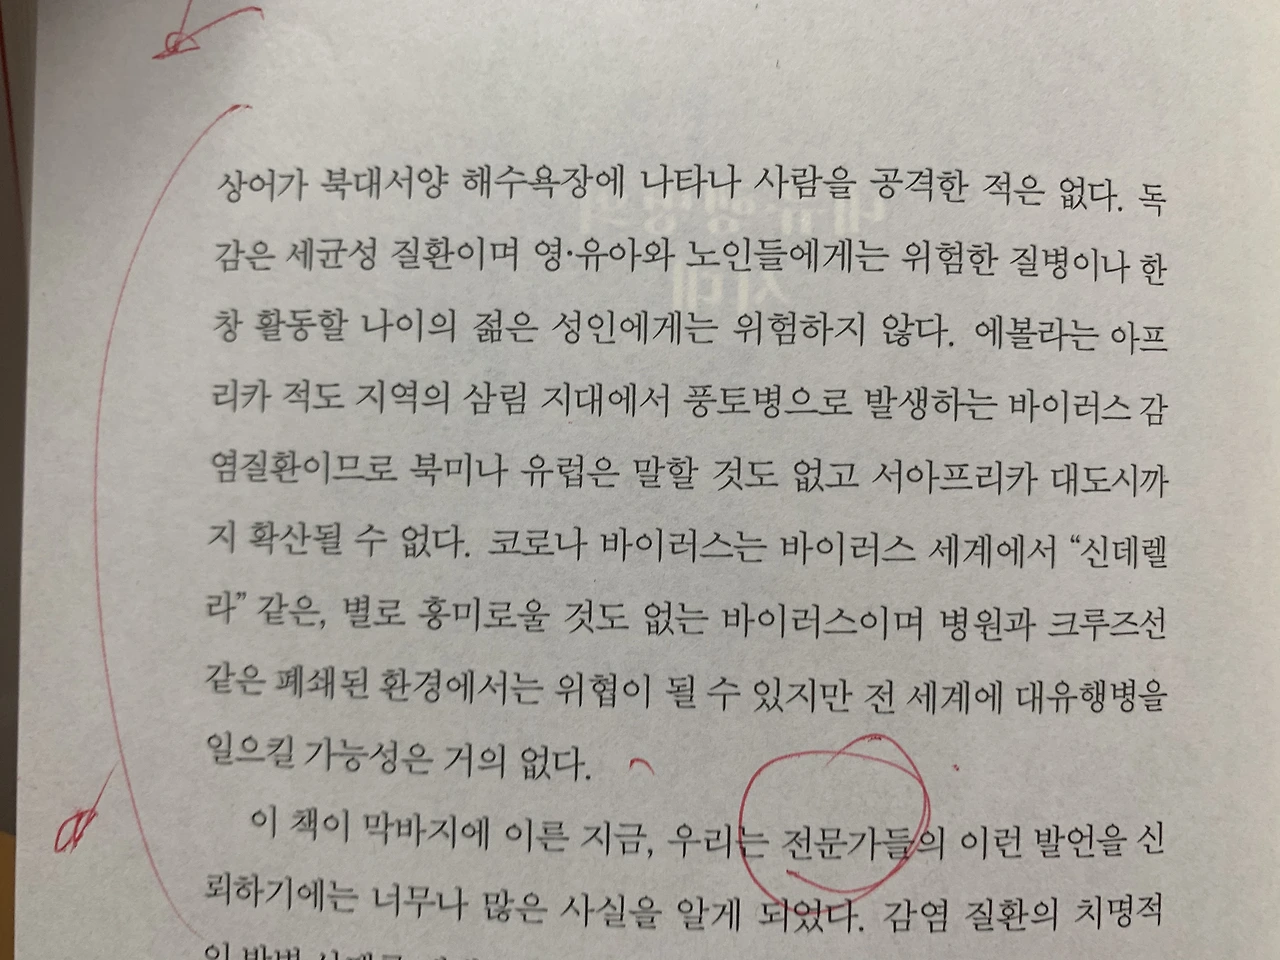 상어가 북대서양 해수욕장에 나타나 사람을 공격한 적은 없다. 독
감은 세균성 질환이며 영·유아와 노인들에게는 위험한 질병이나 한
창 활동할 나이의 젊은 성인에게는 위험하지 않다. 에볼라는 아프
리카 적도 지역의 삼림 지대에서 풍토병으로 발생하는 바이러스 감
염질환이므로 북미나 유럽은 말할 것도 없고 서아프리카 대도시까
지 확산될 수 없다. 코로나 바이러스는 바이러스 세계에서 “신데렐
라” 같은, 별로 흥미로울 것도 없는 바이러스이며 병원과 크루즈선
같은 폐쇄된 환경에서는 위협이 될 수 있지만 전 세계에 대유행병을
일으킬 가능성은 거의 없다.
이 책이 막바지에 이른 지금, 우리는 전문가들의 이런 발언을 신
뢰하기에는 너무나 많은 사실을 알게 되었다. 감염 질환의 치명적